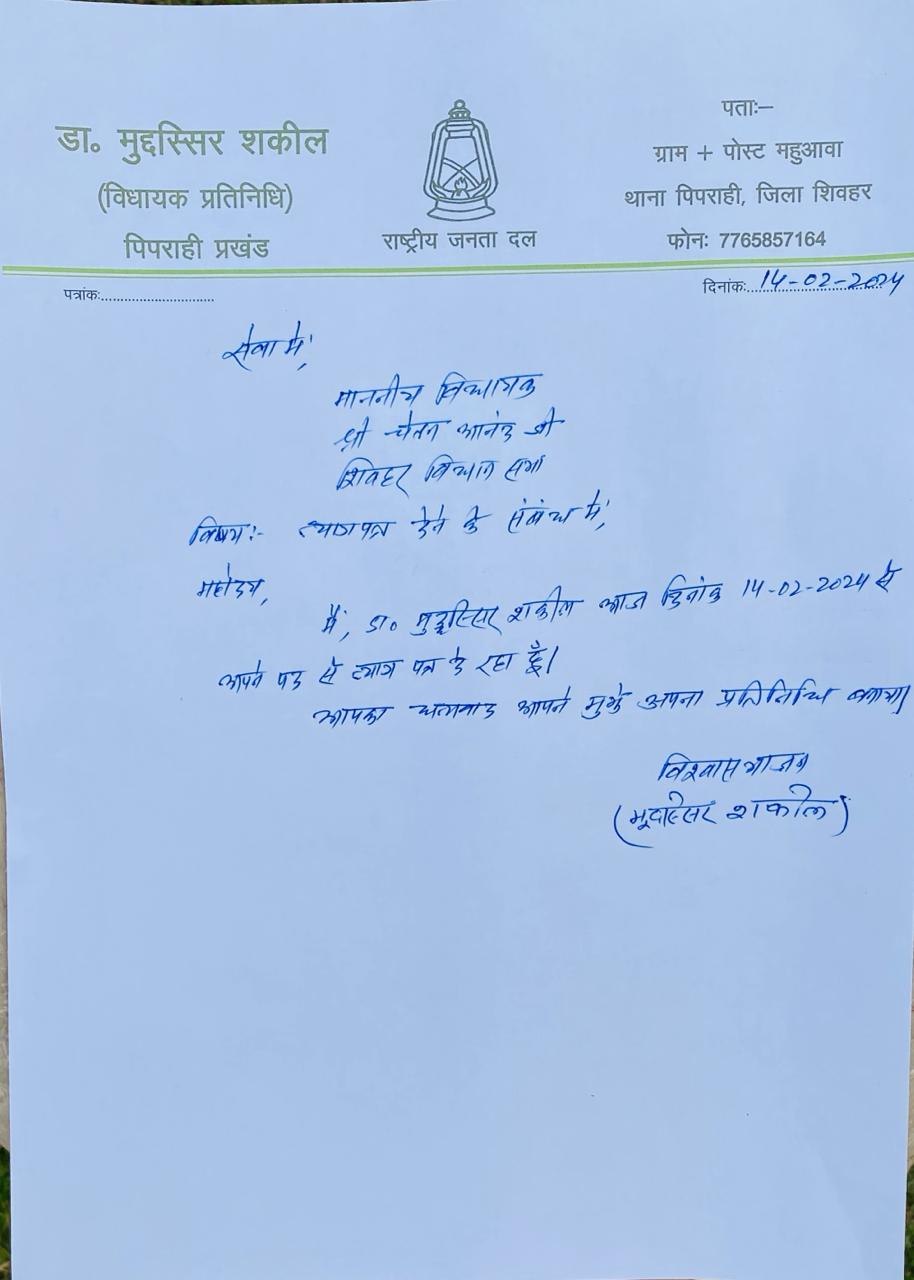 डा॰ मुद्दस्सिर शकील
(विधायक प्रतिनिधि)
पिपराही प्रखंड
राष्ट्रीय जनता दल
पताः–
ग्राम + पोस्ट महुआवा
थाना पिपराही, जिला शिवहर
फोनः 7765857164
पत्रांकः..............................
दिनांकः 14-02-2024
सेवा में,
माननीय विधायक
श्री चेतन आनंद जी
शिवहर विधान सभा
विषय:- त्यागपत्र देने के संबंध में,
महोदय,
मैं, डा॰ मुद्दस्सिर शकील आज दिनांक 14-02-2024 से
आपने पद से त्याग पत्र दे रहा हूँ।
आपका धन्यवाद आपने मुझे अपना प्रतिनिधि बनाया।
विश्वासभाजन
(मूदस्सिर शकील)